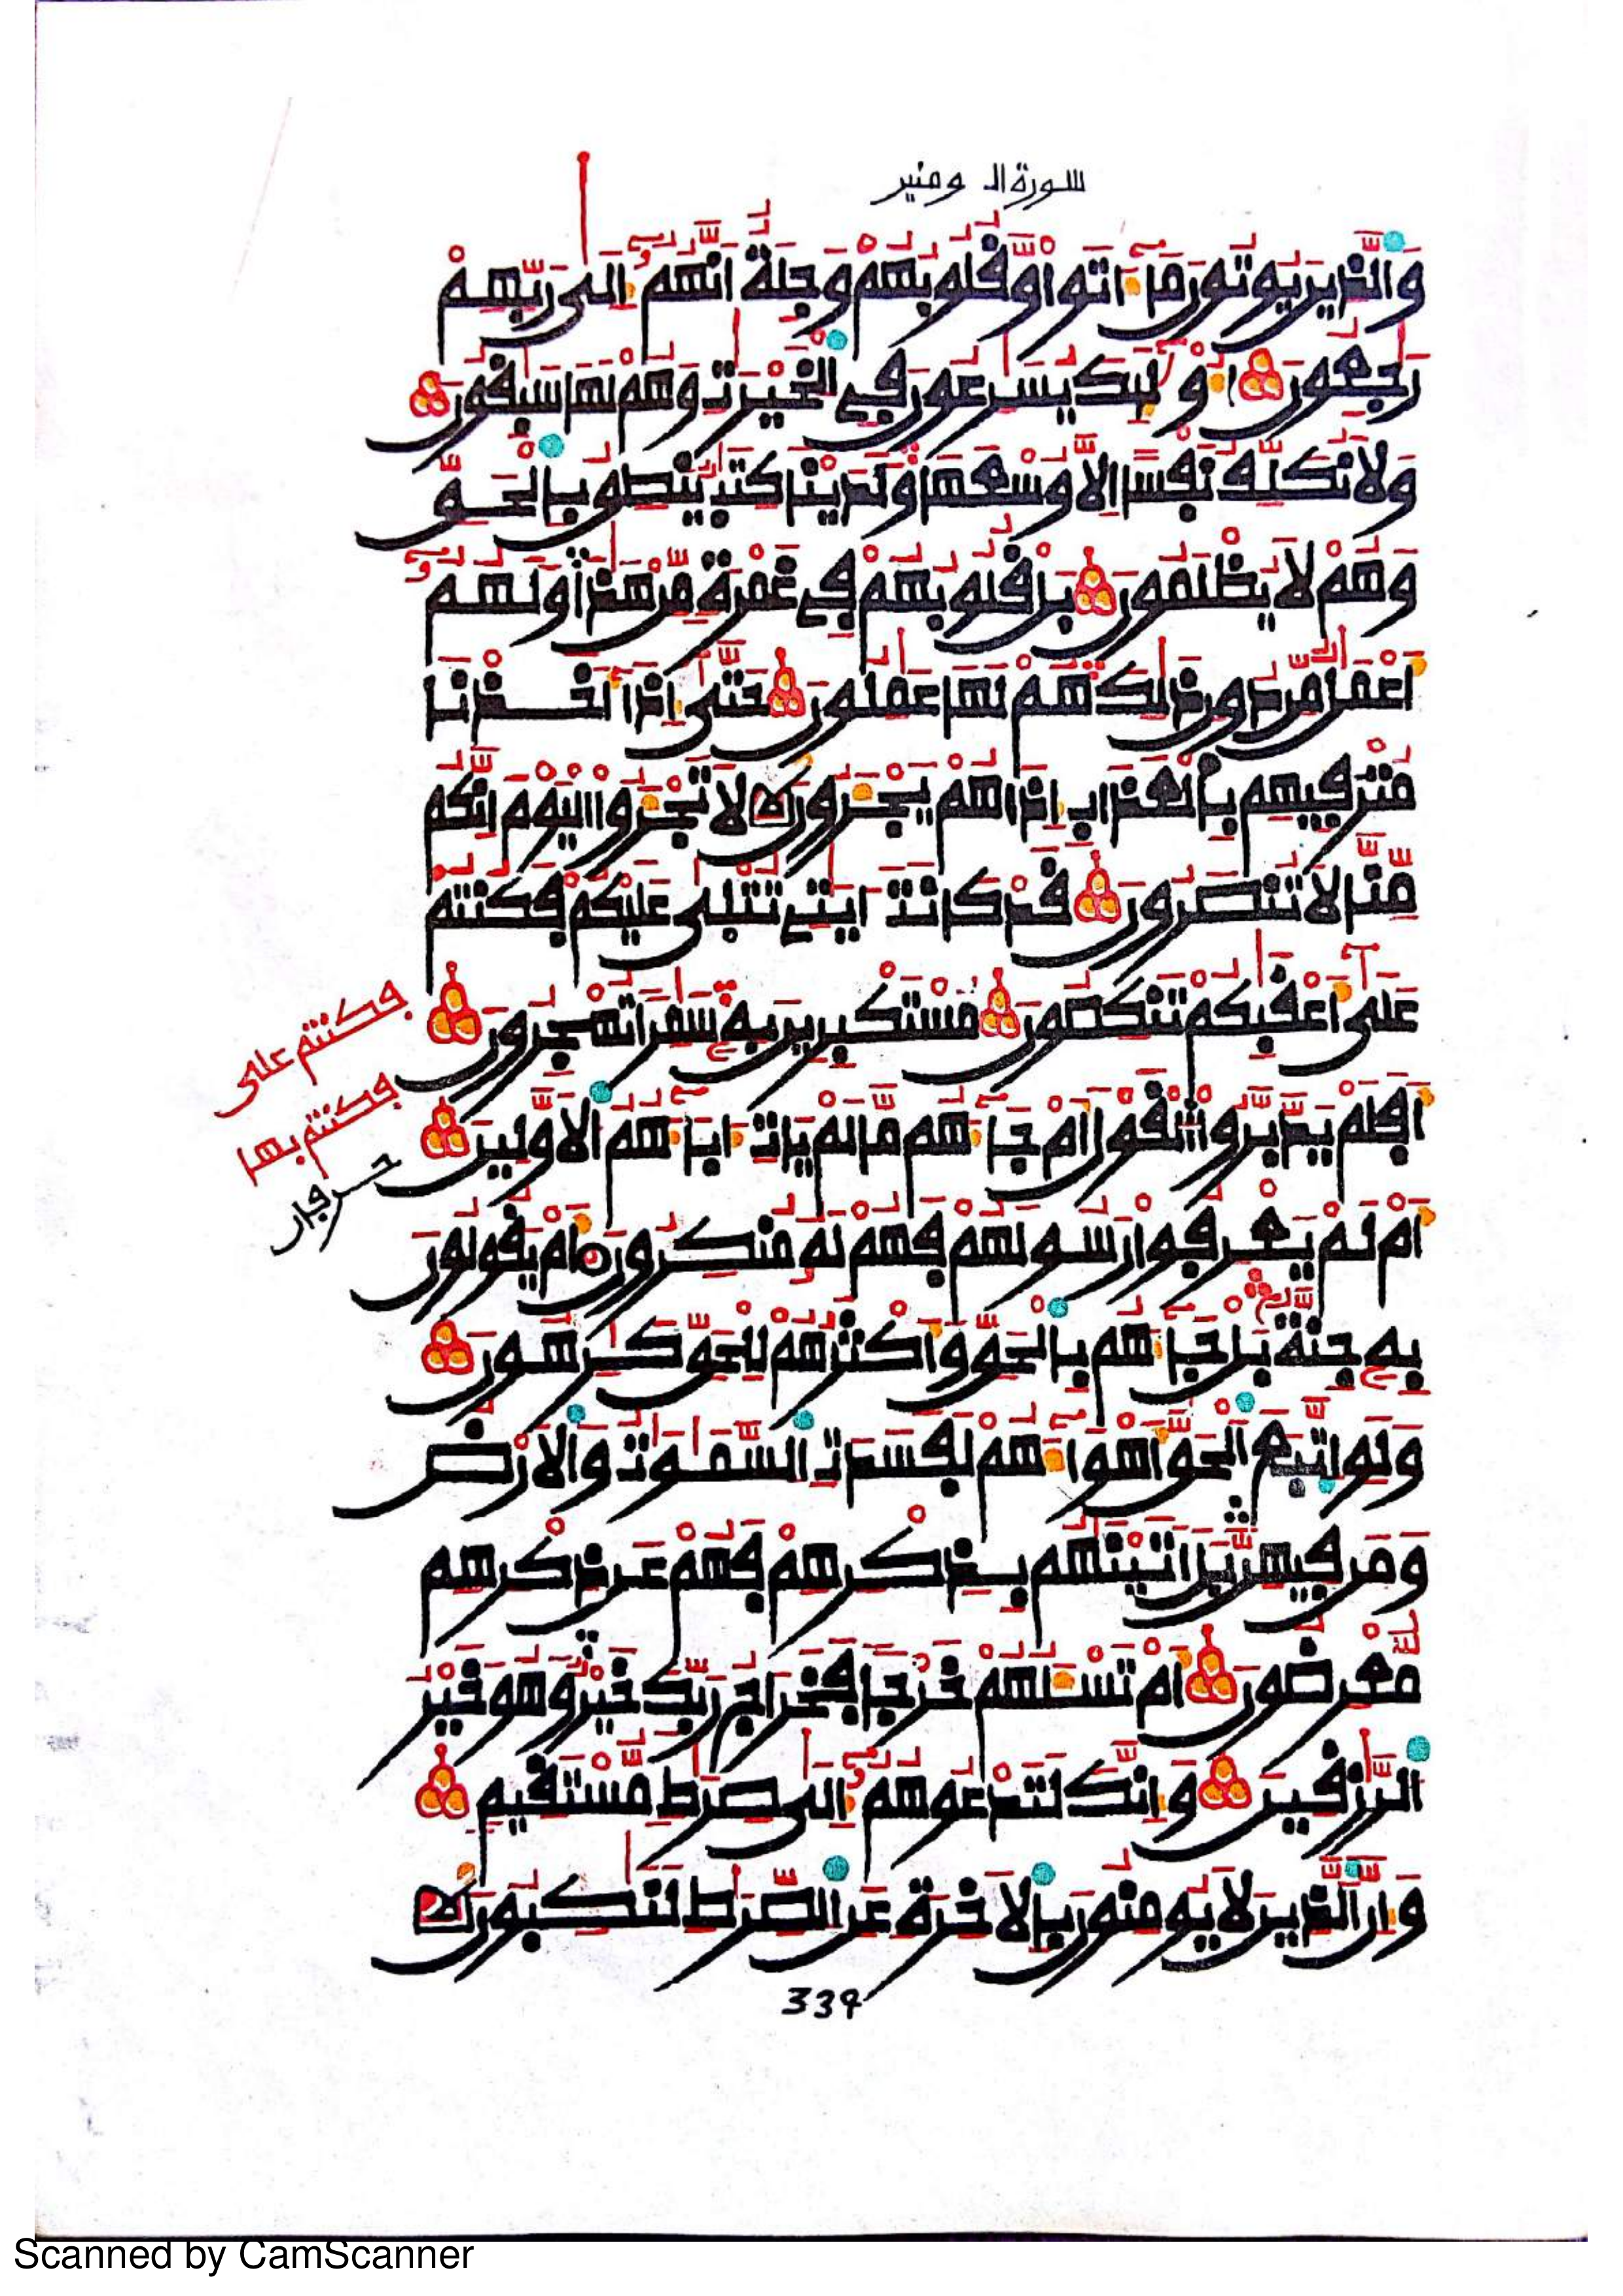 سورة المومنين
وَالذِينَ يُوتُونَ مَا ءَاتَوا وَّقُلُوبُهُمْ وَجِلَةٌ اَنَّهُمُ إِلَىٰ رَبِّهِمْ
رَٰجِعُونَ أُوْلَٰئِكَ يُسَٰرِعُونَ فِي الْخَيْرَٰتِ وَهُمْ لَهَا سَٰبِقُونَ
وَلَا نُكَلِّفُ نَفْسًا اِلَّا وُسْعَهَا وَلَدَيْنَا كِتَٰبٌ يَنطِقُ بِالْحَقِّ
وَهُمْ لَا يُظْلَمُونَ بَلْ قُلُوبُهُمْ فِي غَمْرَةٍ مِّنْ هَٰذَا وَلَهُمُ
أَعْمَٰلٌ مِّن دُونِ ذَٰلِكَ هُمْ لَهَا عَٰمِلُونَ حَتَّىٰ إِذَا أَخَذْنَا
مُتْرَفِيهِم بِالْعَذَابِ إِذَا هُمْ يَجْـَٔرُونَ لَا تَجْـَٔرُوا الْيَوْمَ إِنَّكُم
مِّنَّا لَا تُنصَرُونَ قَدْ كَانَتَ ـايَٰتِي تُتْلَىٰ عَلَيْكُمْ فَكُنتُمُ
عَلَىٰ أَعْقَٰبِكُمْ تَنكِصُونَ مُسْتَكْبِرِينَ بِهِ سَٰمِرًا تُهْجِرُونَ
فكنتم على
فكنتم بها
حرفان
أَفَلَمْ يَدَّبَّرُوا الْقَوْلَ أَمْ جَاءَهُم مَّا لَمْ يَاتِ ءَابَاءَهُمُ الَاوَّلِينَ
أَمْ لَمْ يَعْرِفُوا رَسُولَهُمْ فَهُمْ لَهُ مُنكِرُونَ أَمْ يَقُولُونَ
بِهِ جِنَّةٌ بَلْ جَاءَهُم بِالْحَقِّ وَأَكْثَرُهُمْ لِلْحَقِّ كَٰرِهُونَ
وَلَوِ اتَّبَعَ الْحَقُّ أَهْوَاءَهُمْ لَفَسَدَتِ السَّمَٰوَٰتُ وَالَارْضُ
وَمَن فِيهِنَّ بَلَ اتَيْنَٰهُم بِذِكْرِهِمْ فَهُمْ عَن ذِكْرِهِم
مُّعْرِضُونَ أَمْ تَسْـَٔلُهُمْ خَرْجًا فَخَرَاجُ رَبِّكَ خَيْرٌ وَهُوَ خَيْرُ
الرَّٰزِقِينَ وَإِنَّكَ لَتَدْعُوهُمُ إِلَىٰ صِرَٰطٍ مُّسْتَقِيمٍ
وَإِنَّ الذِينَ لَا يُومِنُونَ بِالَاخِرَةِ عَنِ الصِّرَٰطِ لَنَٰكِبُونَ
339
Scanned by CamScanner